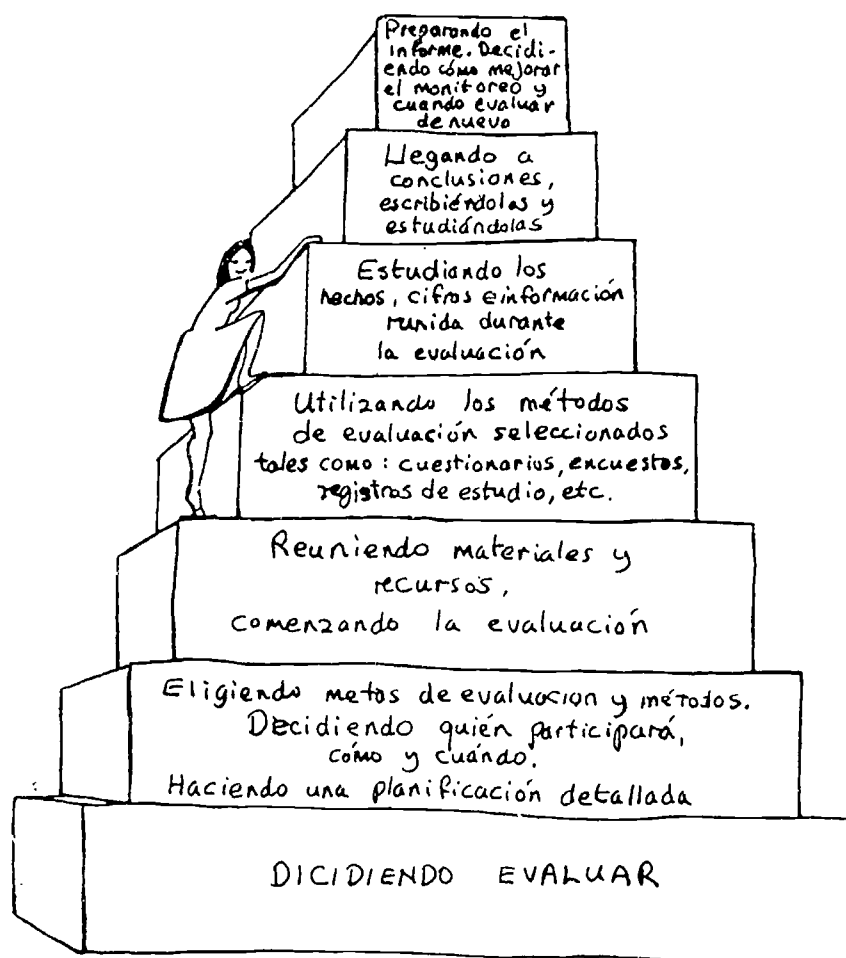 Preparando el
informe. Decidi-
endo cómo mejorar
el monitoreo y
cuando evaluar
de nuevo
Llegando a
conclusiones,
escribiéndolas y
estudiándolas
Estudiando los
hechos, cifras e información
runida durante
la evaluación
Utilizando los métodos
de evaluación seleccionados
tales como: cuestionarios, encuestas,
registros de estudio, etc.
Reuniendo materiales y
recursos,
comenzando la evaluación
Eligiendo metas de evaluacion y métodos.
Decidiendo quién participará,
cómo y cuándo.
Haciendo una planificación detallada
DICIDIENDO EVALUAR